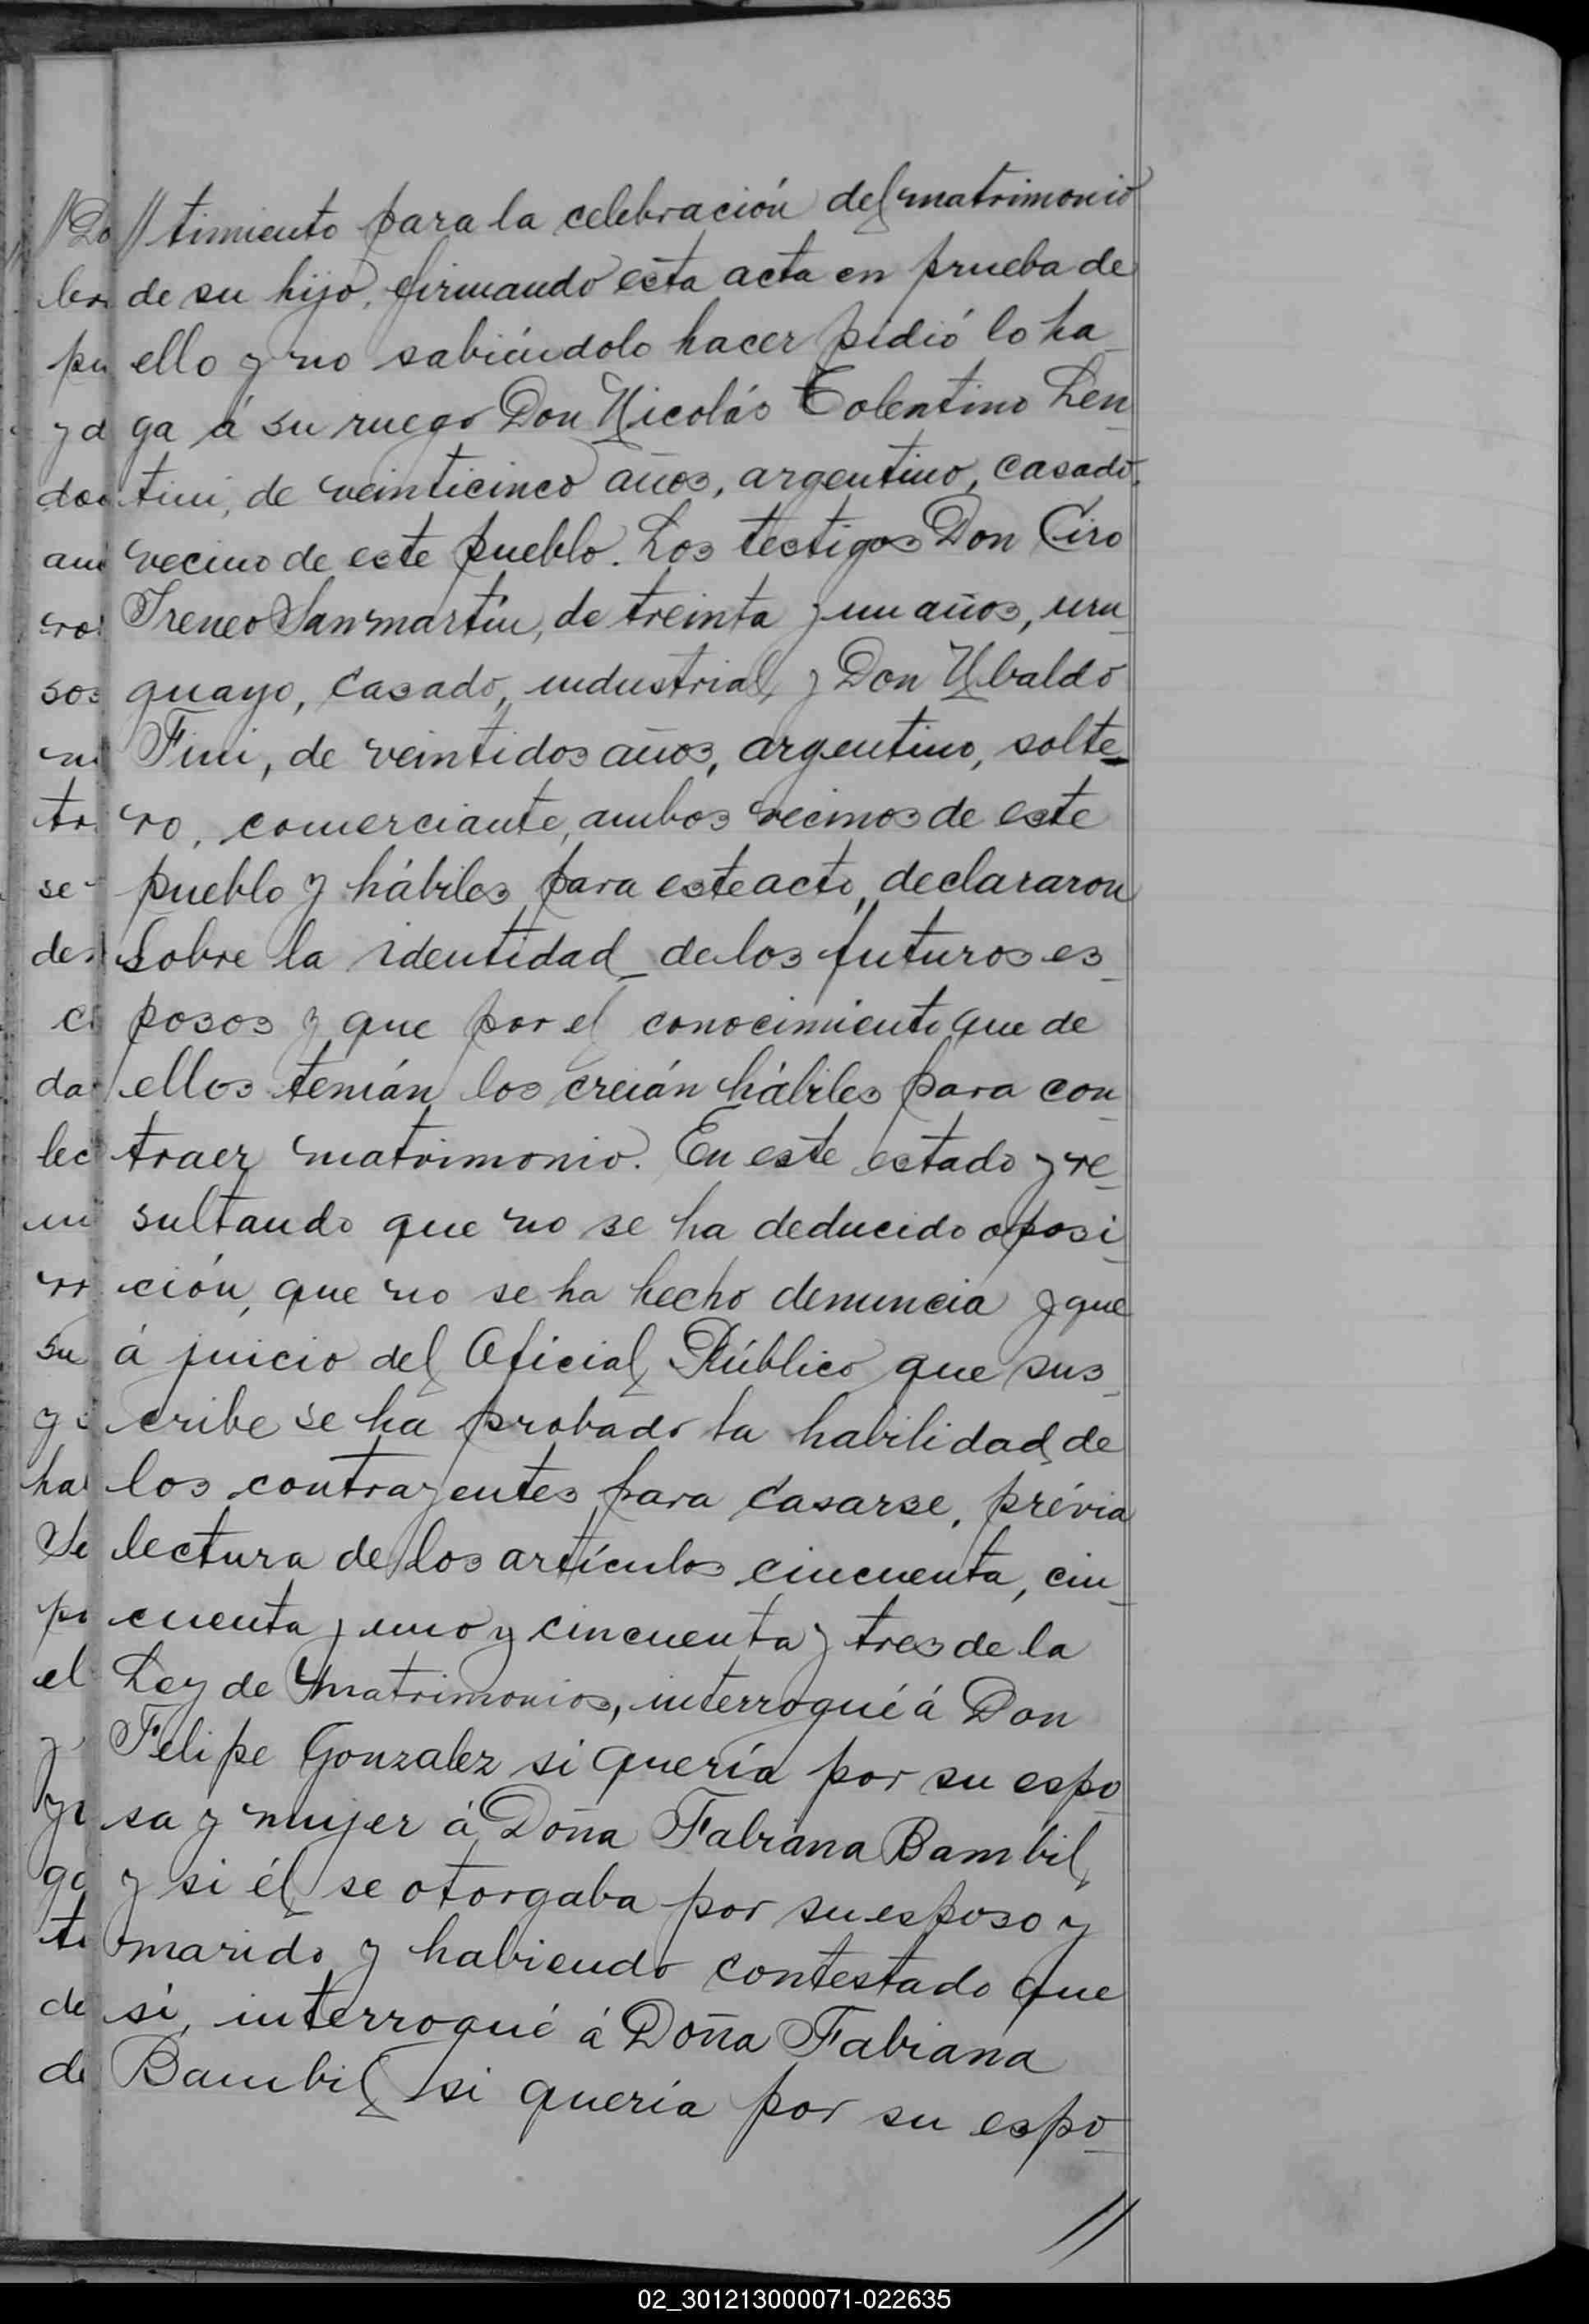 // timiento para la celebración del matrimonio
de su hijo, firmando esta acta en prueba de
ello y no sabiéndolo hacer pidió lo ha_
ga á su ruego Don Nicolás Tolentino Len_
tini, de veinticinco años, argentino, casado,
vecino de este pueblo. Los testigos Don Ciro
Ireneo Sanmartín, de treinta y un años, uru_
guayo, casado, industrial, y Don Ubaldo
Fini, de veintidos años, argentino, solte_
ro, comerciante, ambos vecinos de este
pueblo y hábiles para este acto, declararon
sobre la identidad de los futuros es_
posos y que por el conocimiento que de
ellos tenían los creían hábiles para con_
traer matrimonio. En este estado y re_
sultando que no se ha deducido oposi_
ción, que no se ha hecho denuncia y que
á juicio del Oficial Público que sus_
cribe se ha probado la habilidad de
los contrayentes para casarse, prévia
lectura de los artículos cincuenta, cin_
cuenta y uno y cincuenta y tres de la
Ley de Matrimonios, interrogué á Don
Felipe Gonzalez si quería por su espo_
sa y mujer á Doña Fabiana Bambil,
y si él se otorgaba por su esposo y
marido y habiendo contestado que
sí, interrogué á Doña Fabiana
Bambil si quería por su espo_
//
02_301213000071-022635